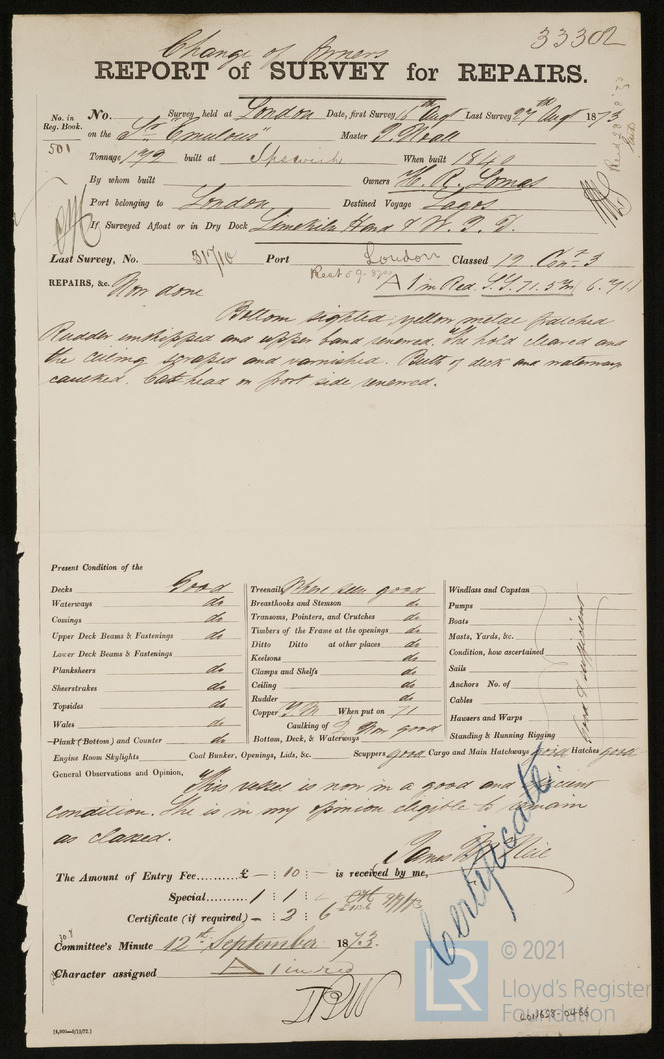 33302
Change of Owners
REPORT of SURVEY for REPAIRS.
No. in Reg. Book. 501
No. Survey held at London Date, first Survey 16th Augt Last Survey 27th Augt 1873
on the "Emulous" Master
Tonnage 172 built at Ipswich When built 1840
By whom built Owners H. R. Lomas
Port belonging to London Destined Voyage Lagos
If Surveyed Afloat or in Dry Dock Limekiln & W. I. D.
Last Survey, No. 31710 Port London Classed 12
A 1 in Red S.S. 71.
REPAIRS, &c. Now done
Bottom sighted; yellow metal patched
Rudder unshipped and upper band renewed. The hold cleared and
the ceiling scraped and varnished. Butts of deck and waterways
caulked. Cat head on port side renewed.
Present Condition of the
Decks Good
Waterways do
Comings do
Upper Deck Beams & Fastenings do
Lower Deck Beams & Fastenings
Planksheers do
Sheerstrakes do
Topsides do
Wales do
Plank (Bottom) and Counter do
Treenails Where seen good
Breasthooks and Stemson do
Transoms, Pointers, and Crutches do
Timbers of the Frame at the openings do
Ditto Ditto at other places do
Keelsons do
Clamps and Shelfs do
Ceiling do
Rudder do
Copper Y.M. When put on 71
Caulking of Bottom, Deck, & Waterways Now good
Windlass and Capstan
Pumps
Boats
Masts, Yards, &c.
Condition, how ascertained
Sails
Anchors No. of
Cables
Hawsers and Warps
Standing & Running Rigging
Good & sufficient
Engine Room Skylights Coal Bunker, Openings, Lids, &c. Scuppers good Cargo and Main Hatchways good Hatches good
General Observations and Opinion, This vessel is now in a good and efficient
condition. She is in my opinion eligible to remain
as classed.
The Amount of Entry Fee £ - : 10 : - is received by me,
Special 1 : 1 : -
Certificate (if required) - : 2 : 6
Certificate.
Committee's Minute 12th September 1873.
Character assigned A 1 in red
[6,000—9/12/72.]
© 2021
LR
Lloyd's Register
Foundation